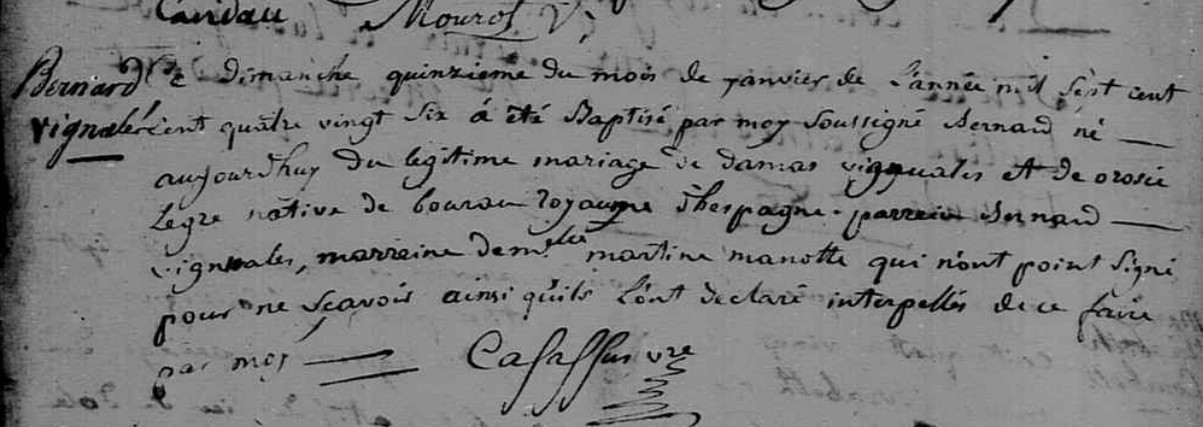 Candau Mourot V;
Bernard Le dimanche quinzieme du mois de janvier de L'année mil sèpt cent
vignalés cent quatre vingt six á été Baptisé par moy soussigné Bernard né
aujourdhuy du legitime mariage de damas vignuales et de orosie
Legre native de Royaume d'hespagne. parrein Bernard
vignuales, marreine demlle martine manotte qui n'ont point signé
pour ne scavoir ainsi qu'ils L'ont declaré interpellés de ce faire
par moy Casassus vre